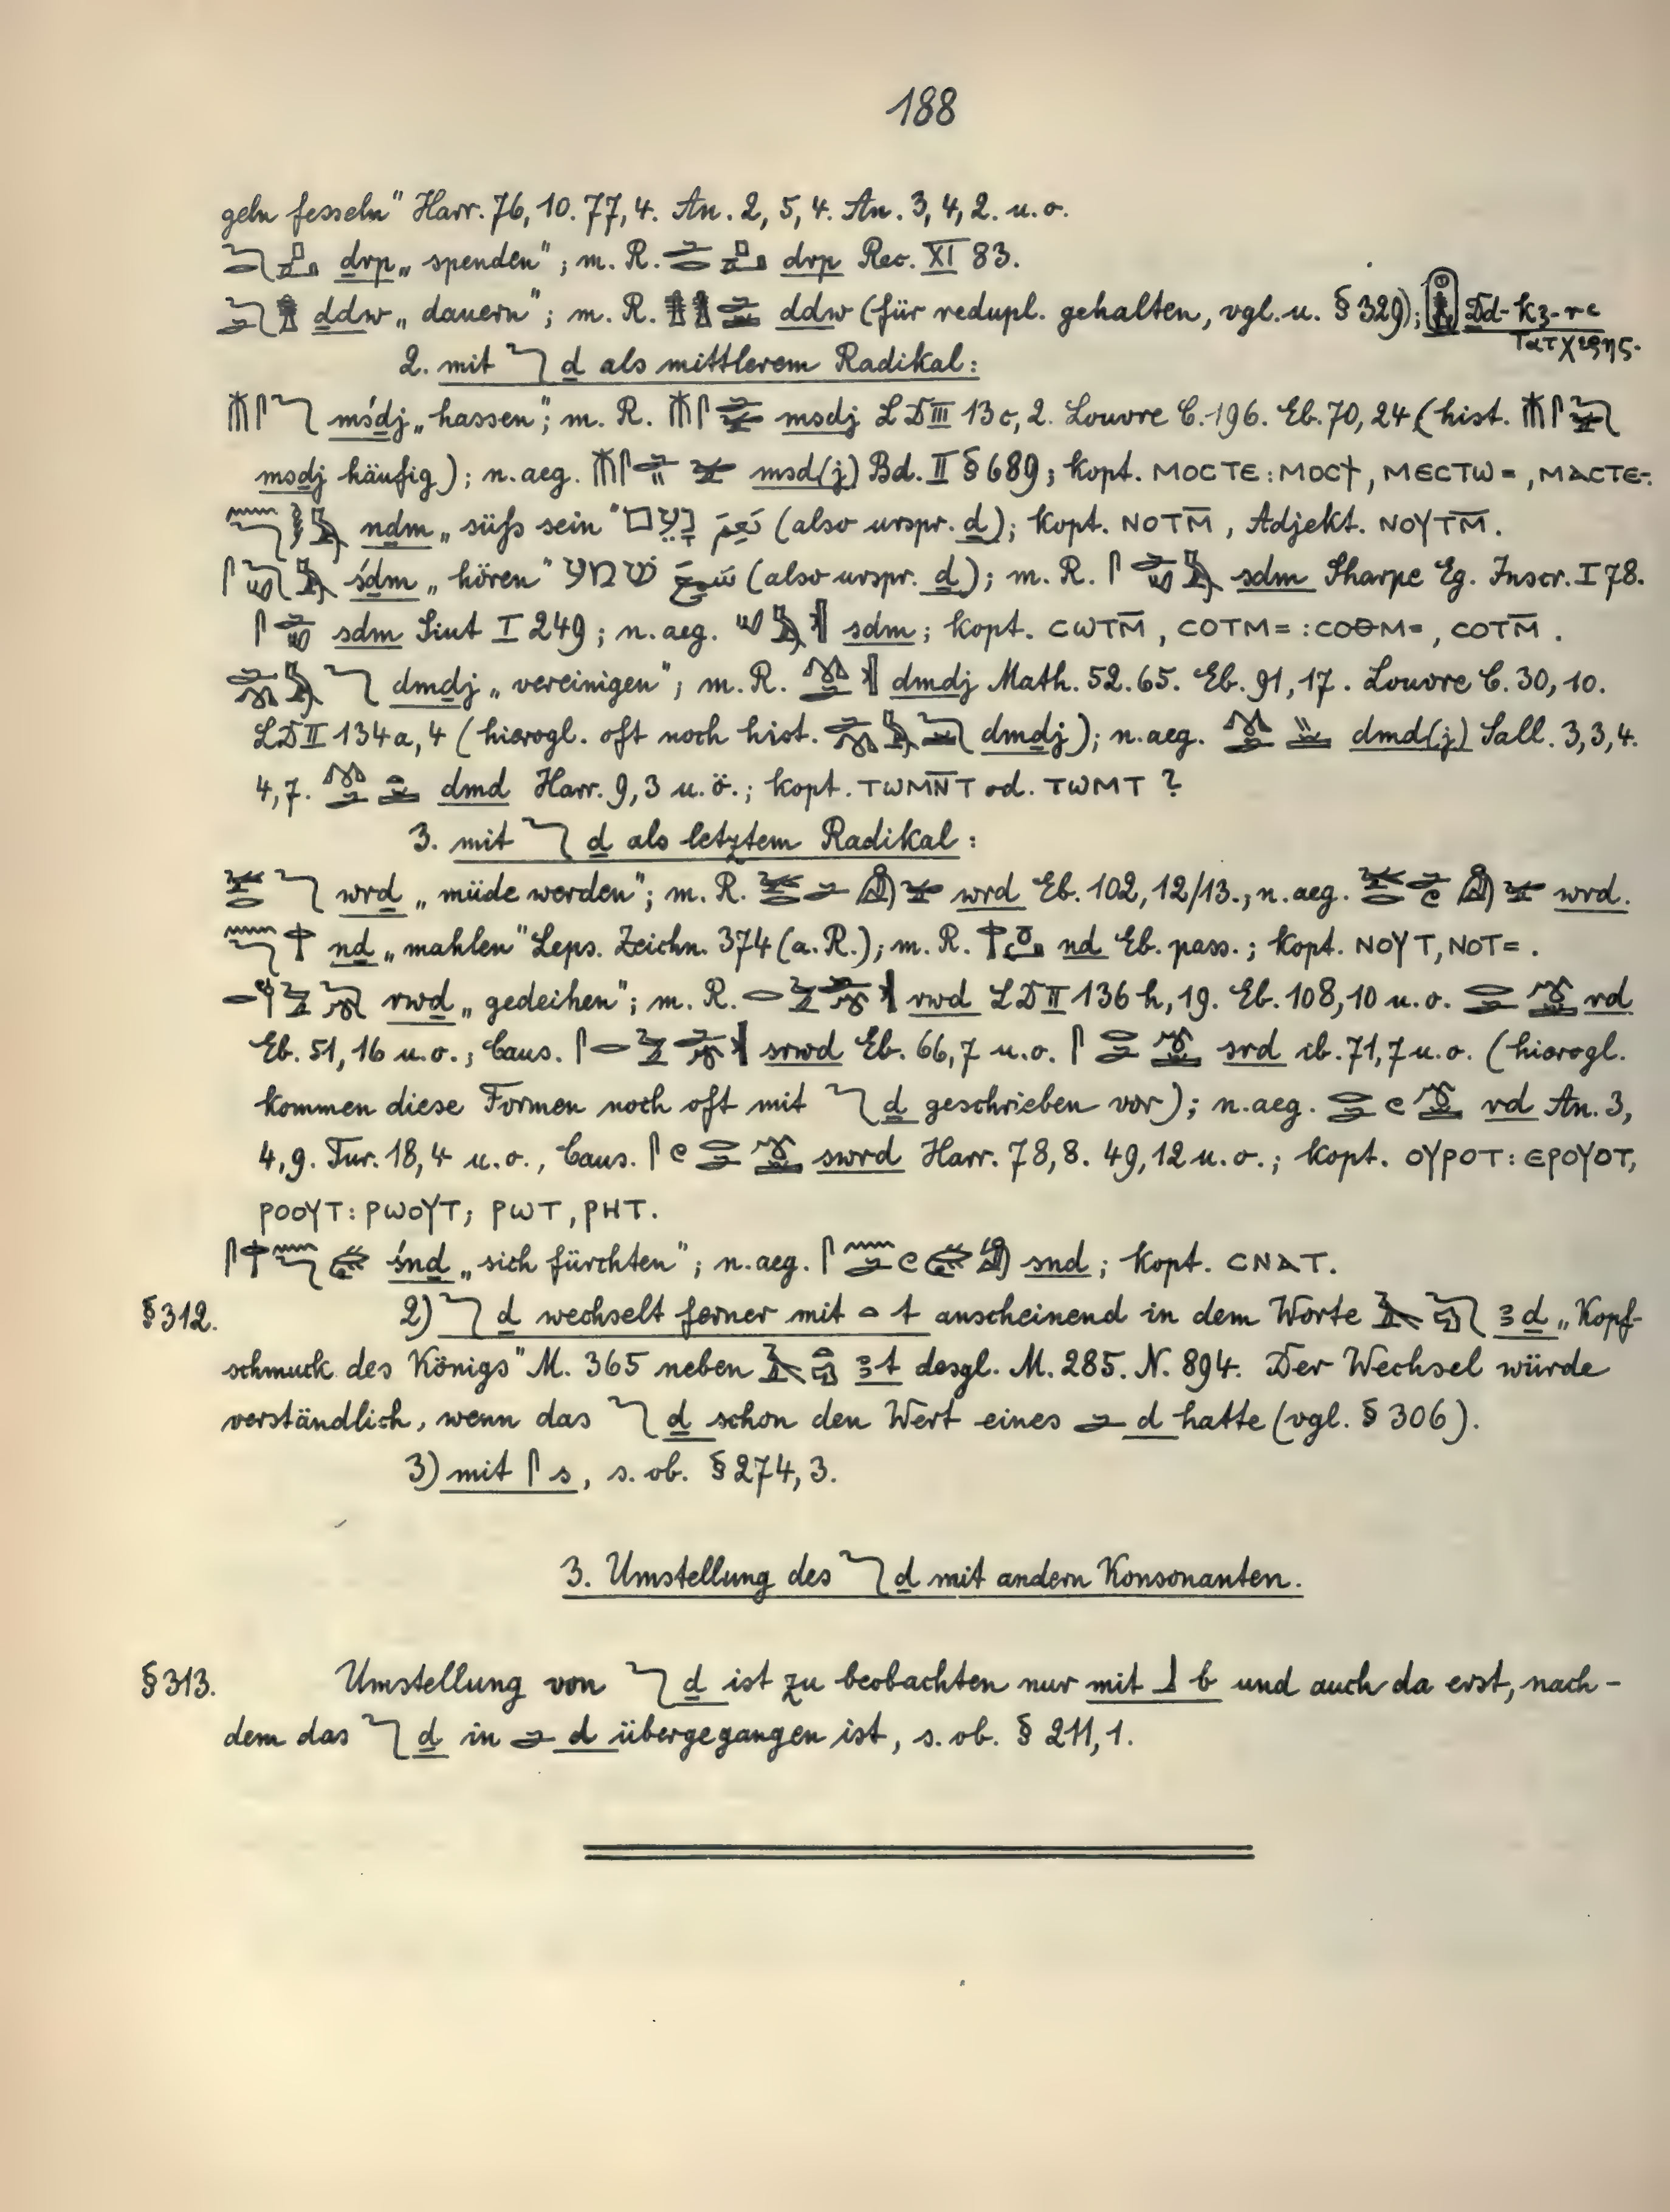 188
geln fesseln" Harr. 76, 10. 77, 4. An. 2, 5, 4. An. 3, 4, 2. u. o.
ḏrp „spenden"; m. R. drp Rec. XI 83.
ḏdw „dauern"; m. R. ddw (für redupl. gehalten, vgl. u. § 329); Ḏd-kꜣ-rꜥ
Τατχερης.
2. mit ḏ als mittlerem Radikal:
mśḏj „hassen"; m. R. msdj LD III 13c, 2. Louvre C. 196. Eb. 70, 24 (hist.
msḏj häufig); n. aeg. msd(j) Bd. II § 689; kopt. ⲙⲟⲥⲧⲉ : ⲙⲟⲥϯ, ⲙⲉⲥⲧⲱ=, ⲙⲁⲥⲧⲉ-.
nḏm „süß sein" נָעֵים نَعِمَ (also urspr. ḏ); kopt. ⲛⲟⲧⲙ̄, Adjekt. ⲛⲟⲩⲧⲙ̄.
śḏm „hören" שמע سَمِعَ (also urspr. ḏ); m. R. sdm Sharpe Eg. Inscr. I 78.
sdm Siut I 249; n. aeg. sdm; kopt. ⲥⲱⲧⲙ̄, ⲥⲟⲧⲙ= : ⲥⲟⲑⲙ=, ⲥⲟⲧⲙ̄.
dmḏj „vereinigen"; m. R. dmdj Math. 52. 65. Eb. 91, 17. Louvre C. 30, 10.
LD II 134a, 4 (hierogl. oft noch hist. dmḏj); n. aeg. dmd(j) Sall. 3, 3, 4.
4, 7. dmd Harr. 9, 3 u. ö.; kopt. ⲧⲱⲙⲛ̄ⲧ od. ⲧⲱⲙⲧ ?
3. mit ḏ als letztem Radikal:
wrḏ „müde werden"; m. R. wrd Eb. 102, 12/13., n. aeg. wrd.
nḏ „mahlen" Leps. Zeichn. 374 (a. R.); m. R. nd Eb. pass.; kopt. ⲛⲟⲩⲧ, ⲛⲟⲧ=.
rwḏ „gedeihen"; m. R. rwd LD II 136h, 19. Eb. 108, 10 u. o. rd
Eb. 51, 16 u. o., Caus. srwd Eb. 66, 7 u. o. srd ib. 71, 7 u. o. (hierogl.
kommen diese Formen noch oft mit ḏ geschrieben vor); n. aeg. rd An. 3,
4, 9. Tur. 18, 4 u. o., Caus. swrd Harr. 78, 8. 49, 12 u. o.; kopt. ⲟⲩⲣⲟⲧ : ⲉⲣⲟⲩⲟⲧ,
ⲣⲟⲟⲩⲧ : ⲣⲱⲟⲩⲧ; ⲣⲱⲧ, ⲣⲏⲧ.
śnḏ „sich fürchten"; n. aeg. snd; kopt. ⲥⲛⲁⲧ.
§ 312. 2) ḏ wechselt ferner mit t anscheinend in dem Worte ꜣḏ „Kopf-
schmuck des Königs" M. 365 neben ꜣt desgl. M. 285. N. 894. Der Wechsel würde
verständlich, wenn das ḏ schon den Wert eines d hatte (vgl. § 306).
3) mit s, s. ob. § 274, 3.
3. Umstellung des ḏ mit andern Konsonanten.
§ 313. Umstellung von ḏ ist zu beobachten nur mit b und auch da erst, nach-
dem das ḏ in d übergegangen ist, s. ob. § 211, 1.